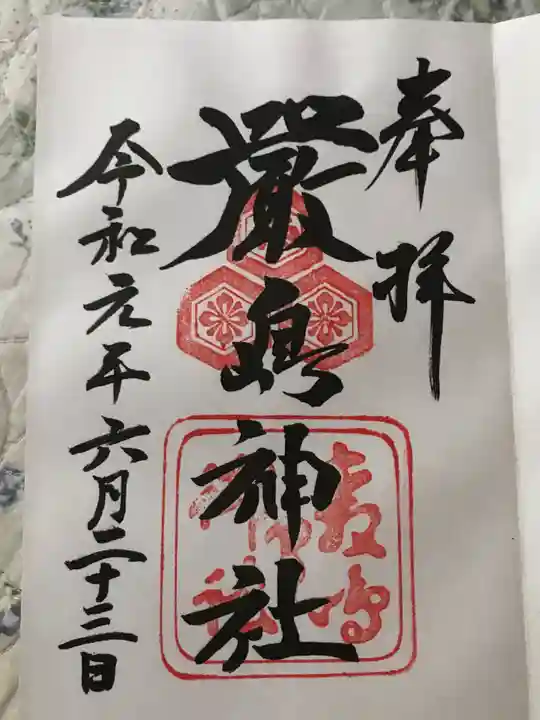 奉拝
厳島神社
令和元年六月二十三日